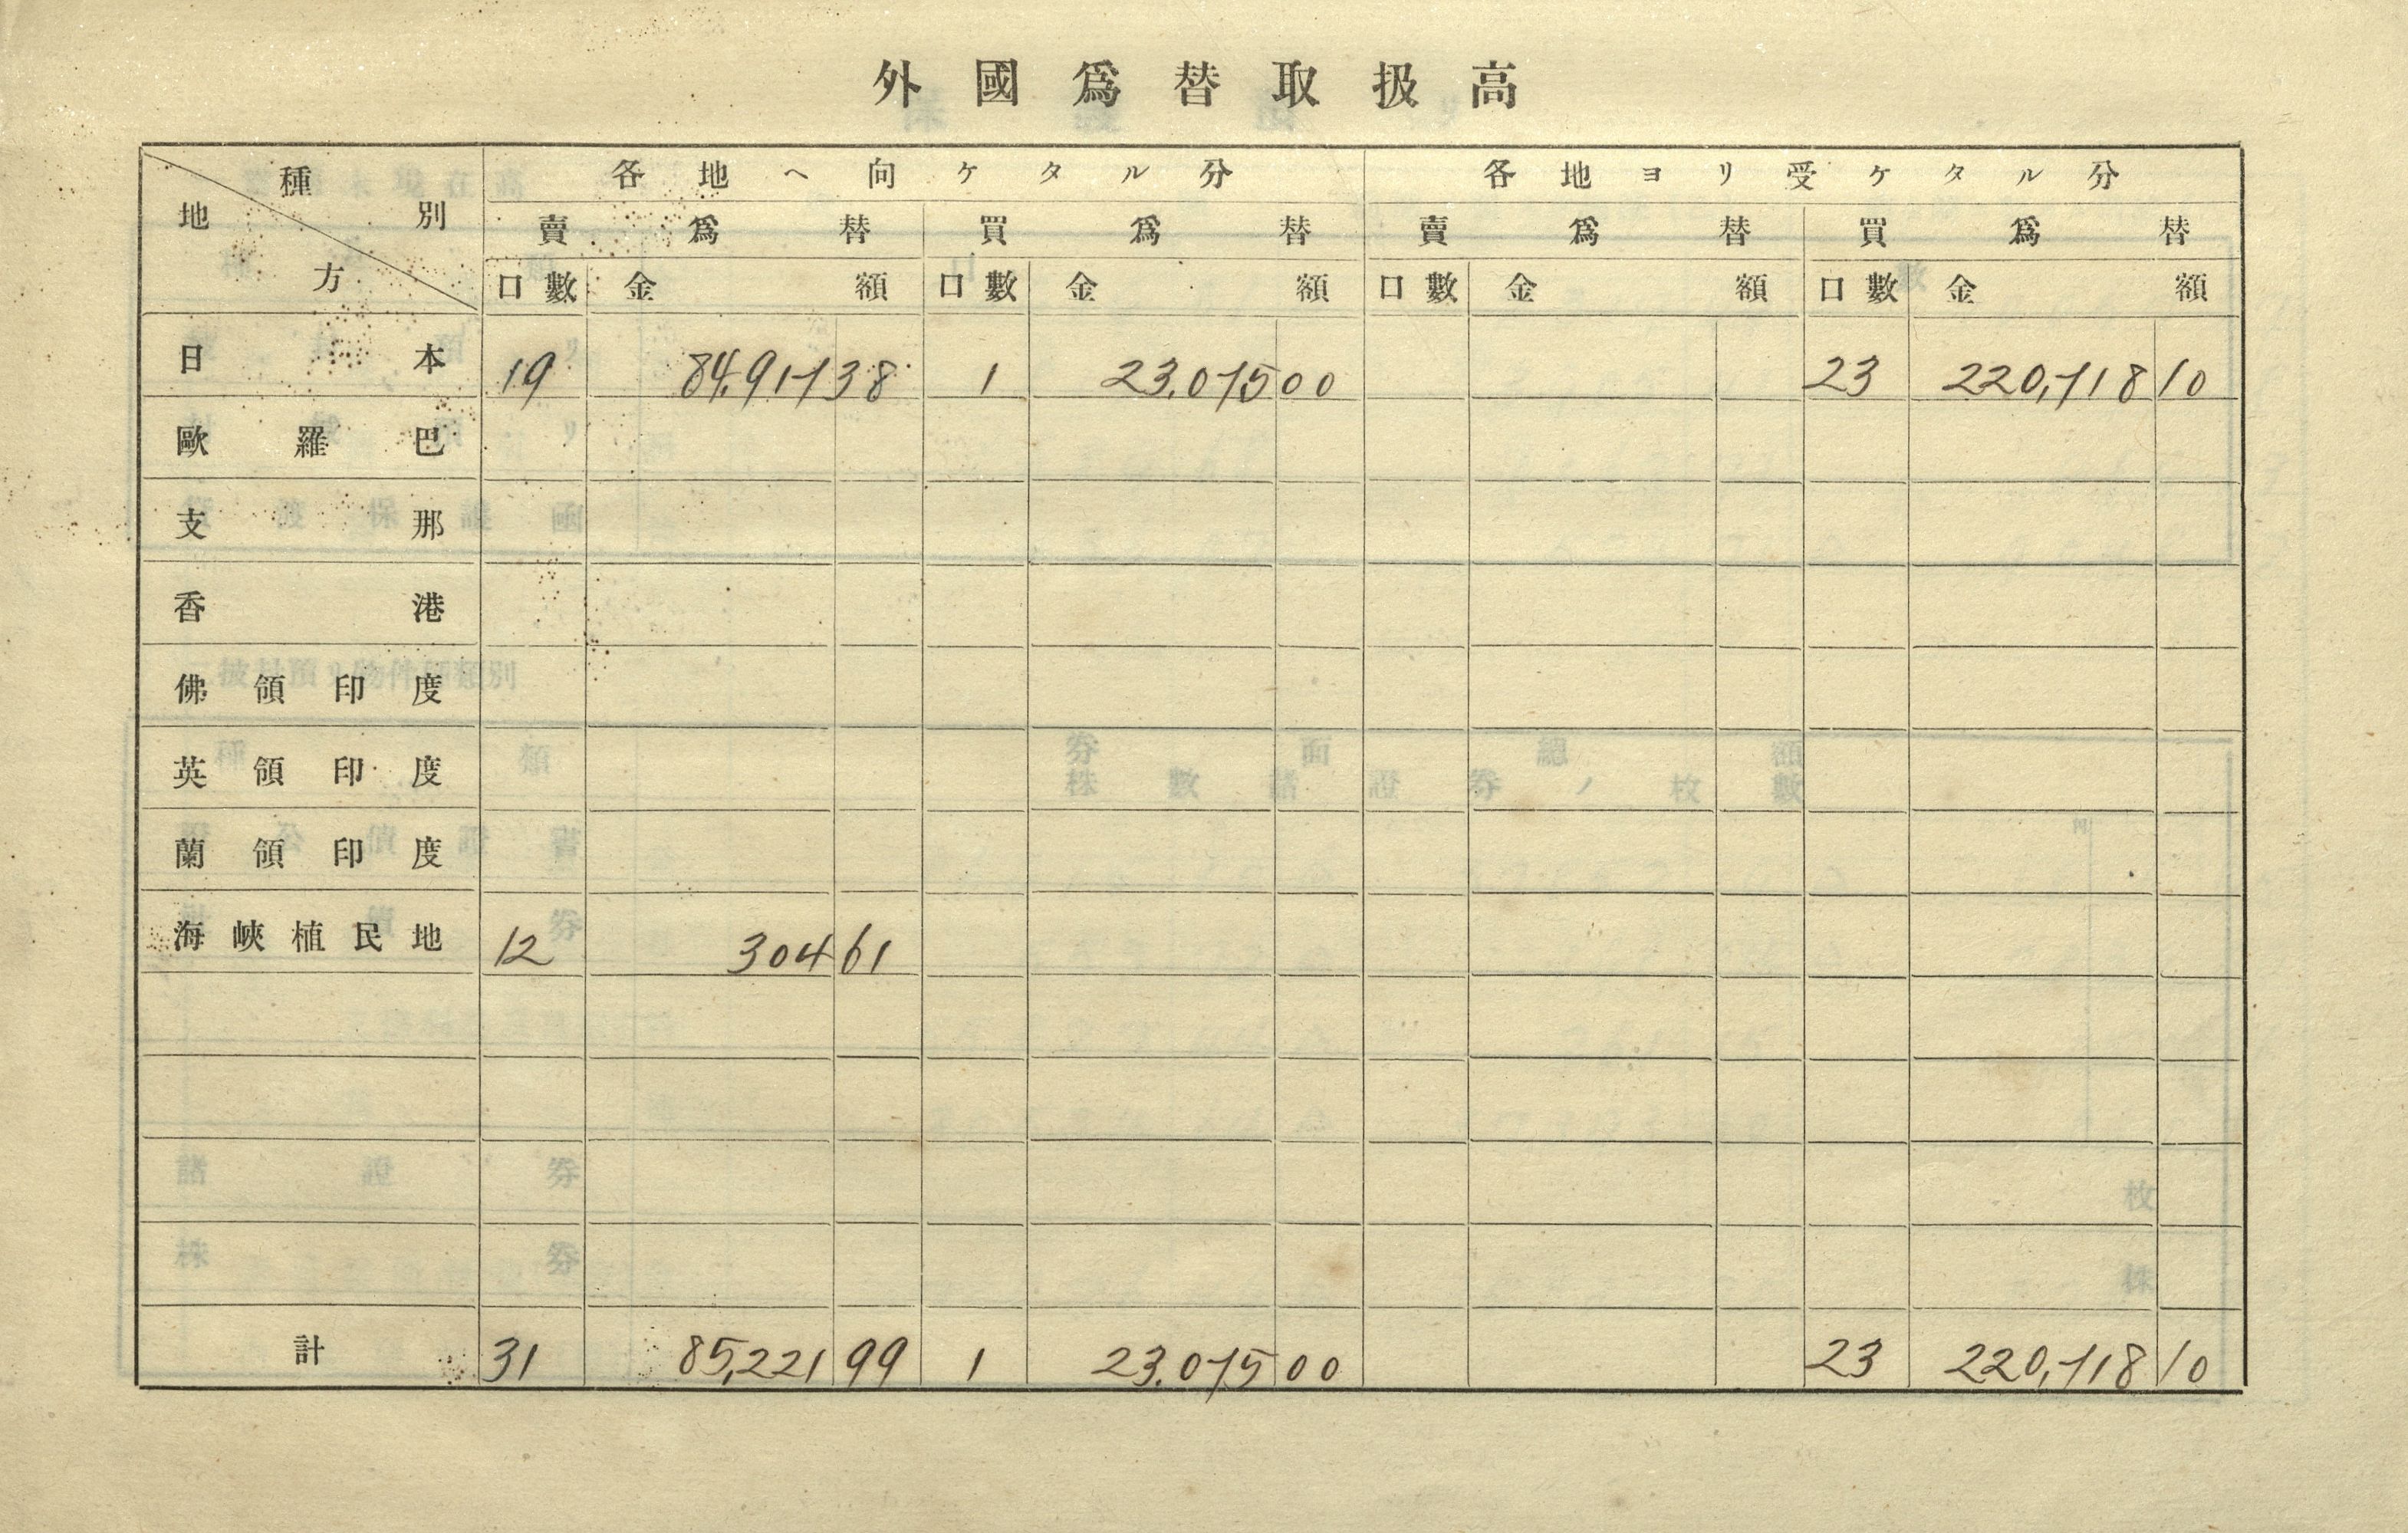 外國爲替取扱高
種別 地方 各地ヘ向ケタル分 各地ヨリ受ケタル分
賣爲替 買爲替 賣爲替 買爲替
口數 金額 口數 金額 口數 金額 口數 金額
日本 19 84,917 38 1 23,075 00 23 220,718 10
歐羅巴
支那
香港
佛領印度
英領印度
蘭領印度
海峽植民地 12 304 61
計 31 85,221 99 1 23,075 00 23 220,718 10